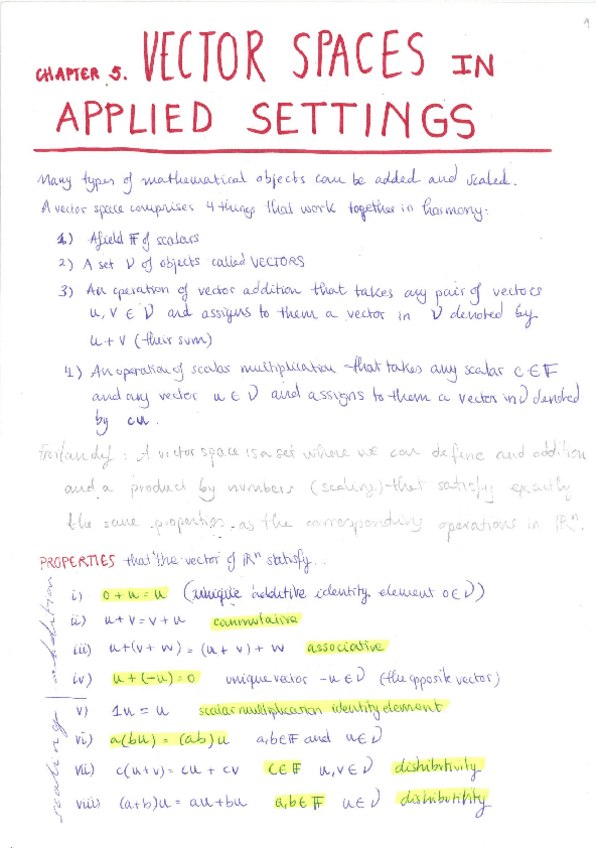 1
CHAPTER 5. VECTOR SPACES IN
APPLIED SETTINGS
Many types of mathematical objects can be added and scaled.
A vector space comprises 4 things that work together in harmony:
1) A field 𝔽 of scalars
2) A set V of objects called VECTORS
3) An operation of vector addition that takes any pair of vectors
u, v ∈ V and assigns to them a vector in V denoted by
u + v (their sum)
4) An operation of scalar multiplication that takes any scalar c ∈ 𝔽
and any vector u ∈ V and assigns to them a vector in V denoted
by cu.
def: A vector space is a set where we can define and addition
and a product by numbers (scaling) that satisfy exactly
the same properties as the corresponding operations in ℝⁿ.
PROPERTIES that the vector of ℝⁿ satisfy...
addition
i) 0 + u = u (unique additive identity element 0 ∈ V)
ii) u + v = v + u conmutative
iii) u + (v + w) = (u + v) + w associative
iv) u + (-u) = 0 unique vector -u ∈ V (the opposite vector)
scaling
v) 1u = u scalar multiplication identity element
vi) a(bu) = (ab)u a, b ∈ 𝔽 and u ∈ V
vii) c(u+v) = cu + cv c ∈ 𝔽 u, v ∈ V distributivity
viii) (a+b)u = au + bu a, b ∈ 𝔽 u ∈ V distributitity